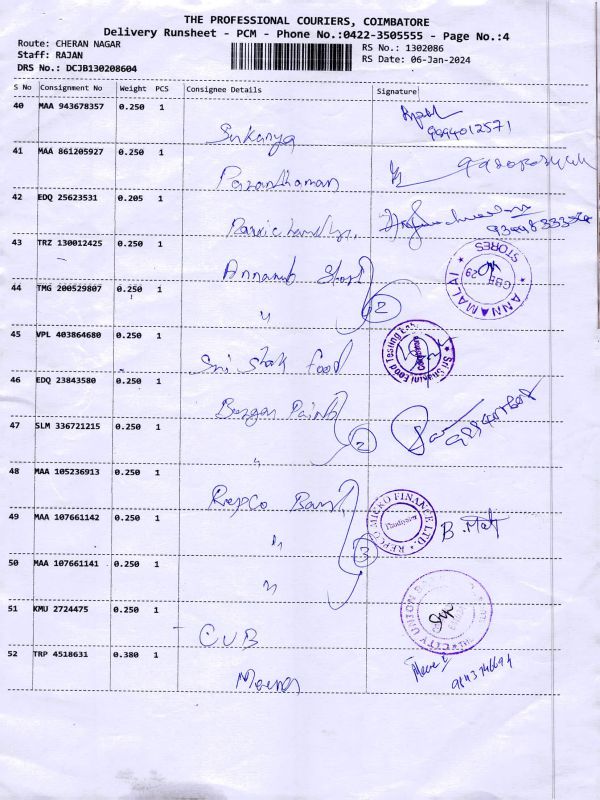 THE PROFESSIONAL COURIERS, COIMBATORE
Delivery Runsheet - PCM - Phone No.:0422-3505555 - Page No.:4
Route: CHERAN NAGAR
Staff: RAJAN
DRS No.: DCJB130208604
RS No.: 1302086
RS Date: 06-Jan-2024
S No Consignment No Weight PCS Consignee Details Signature
40 MAA 943678357 0.250 1
Sukanya
9994012571
41 MAA 861205927 0.250 1
42 EDQ 25623531 0.205 1
43 TRZ 130012425 0.250 1
ANNAMALAI STORES
44 TMG 200529807 0.250 1
"
2
45 VPL 403864680 0.250 1
Food
Food Testing
46 EDQ 23843580 0.250 1
47 SLM 336721215 0.250 1
"
2
48 MAA 105236913 0.250 1
Repco Bank
REPCO MICRO FINANCE LTD.
49 MAA 107661142 0.250 1
"
50 MAA 107661141 0.250 1
"
3
51 KMU 2724475 0.250 1
CUB
CITY UNION
52 TRP 4518631 0.380 1